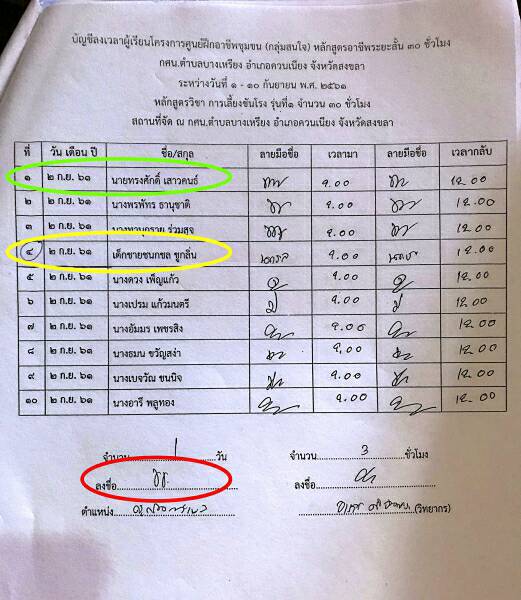 บัญชีลงเวลาผู้เรียนโครงการศูนย์ฝึกอาชีพชุมชน (กลุ่มสนใจ) หลักสูตรอาชีพระยะสั้น ๓๐ ชั่วโมง
กศน.ตำบลบางเหรียง อำเภอควนเนียง จังหวัดสงขลา
ระหว่างวันที่ ๑ - ๑๐ กันยายน พ.ศ. ๒๕๖๑
หลักสูตรวิชา การเลี้ยงชันโรง รุ่นที่๑ จำนวน ๓๐ ชั่วโมง
สถานที่จัด ณ กศน.ตำบลบางเหรียง อำเภอควนเนียง จังหวัดสงขลา
ที่ วัน เดือน ปี ชื่อ/สกุล ลายมือชื่อ เวลามา ลายมือชื่อ เวลากลับ
๑ ๒ ก.ย. ๖๑ นายทรงศักดิ์ เสาวคนธ์ 9.00 12.00
๒ ๒ ก.ย. ๖๑ นางพรพัทร ธานุชาติ 9.00 12.00
๓ ๒ ก.ย. ๖๑ ร่วมสุจ 9.00 12.00
๔ ๒ ก.ย. ๖๑ เด็กชายชนกชล ชูกลิ่น 9.00 12.00
๕ ๒ ก.ย. ๖๑ นางดวง เพ็ญแก้ว 9.00 12.00
๖ ๒ ก.ย. ๖๑ นางเปรม แก้วมนตรี 9.00 12.00
๗ ๒ ก.ย. ๖๑ นางอัมมร เพชรสิง 9.00 12.00
๘ ๒ ก.ย. ๖๑ นางธมน ขวัญสง่า 9.00 12.00
๙ ๒ ก.ย. ๖๑ นางเบจวัณ ชนนิจ 9.00 12.00
๑๐ ๒ ก.ย. ๖๑ นางอารี พลูทอง 9.00 12.00
จำนวน 1 วัน จำนวน 3 ชั่วโมง
ลงชื่อ ลงชื่อ
ตำแหน่ง (วิทยากร)